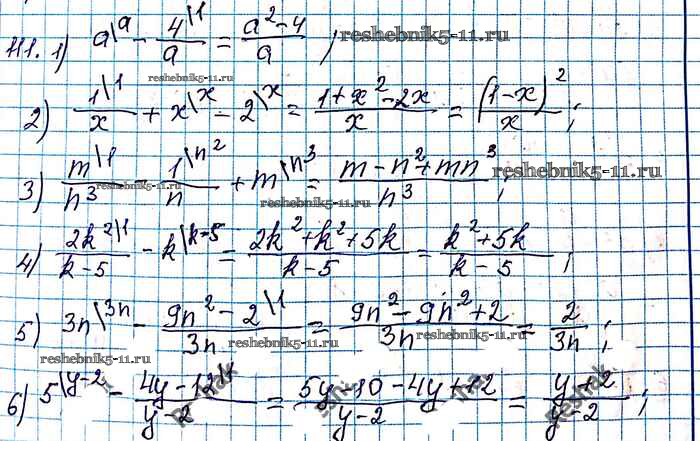 111. 1) a\a - 4\1/a = a²-4/a ; reshebnik5-11.ru
reshebnik5-11.ru
2) 1\1/x + x\x - 2\x = 1+x²-2x/x = (1-x)²/x ;
reshebnik5-11.ru
3) m\1/n³ - 1\n²/n + m\n³ = m-n²+mn³/n³ ; reshebnik5-11.ru
reshebnik5-11.ru
4) 2k²\1/k-5 - k\k-5 = 2k²+k²+5k/k-5 = k²+5k/k-5 ;
5) 3n\3n - 9n²-2\1/3n = 9n²-9n²+2/3n = 2/3n ;
reshebnik5-11.ru reshebnik5-11.ru
reshebnik5-11.ru
6) 5\y-2 - 4y-12\1/y-2 = 5y-10-4y+12/y-2 = y+2/y-2 ;